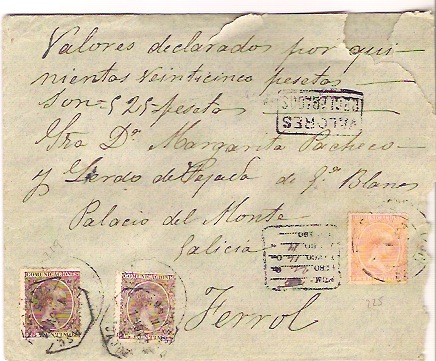 Valores declarados por qui-
nientas veinticinco pesetas
Son = 525 = pesetas
VALORES
DECLARADOS
Sra Dª Margarita Pacheco
y Lerdo de Tejada de Gª Blanes
Palacio del Monte
Galicia
Ferrol
COMUNICACIONES
COMUNICACIONES
225